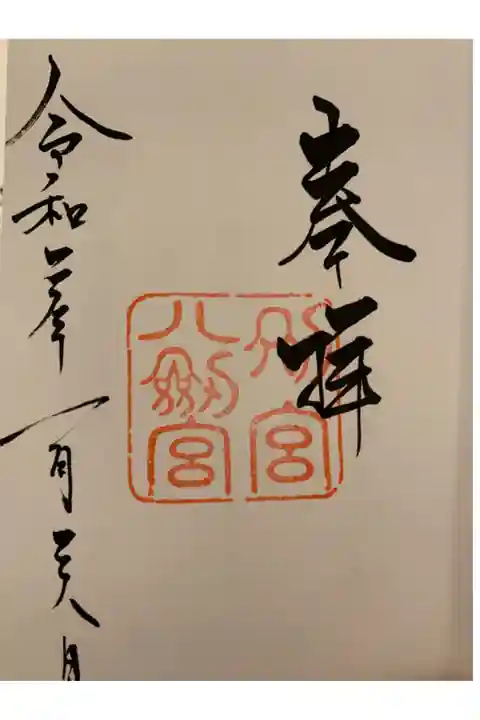 奉拝
別宮
八劔宮
令和二年一月二十八日